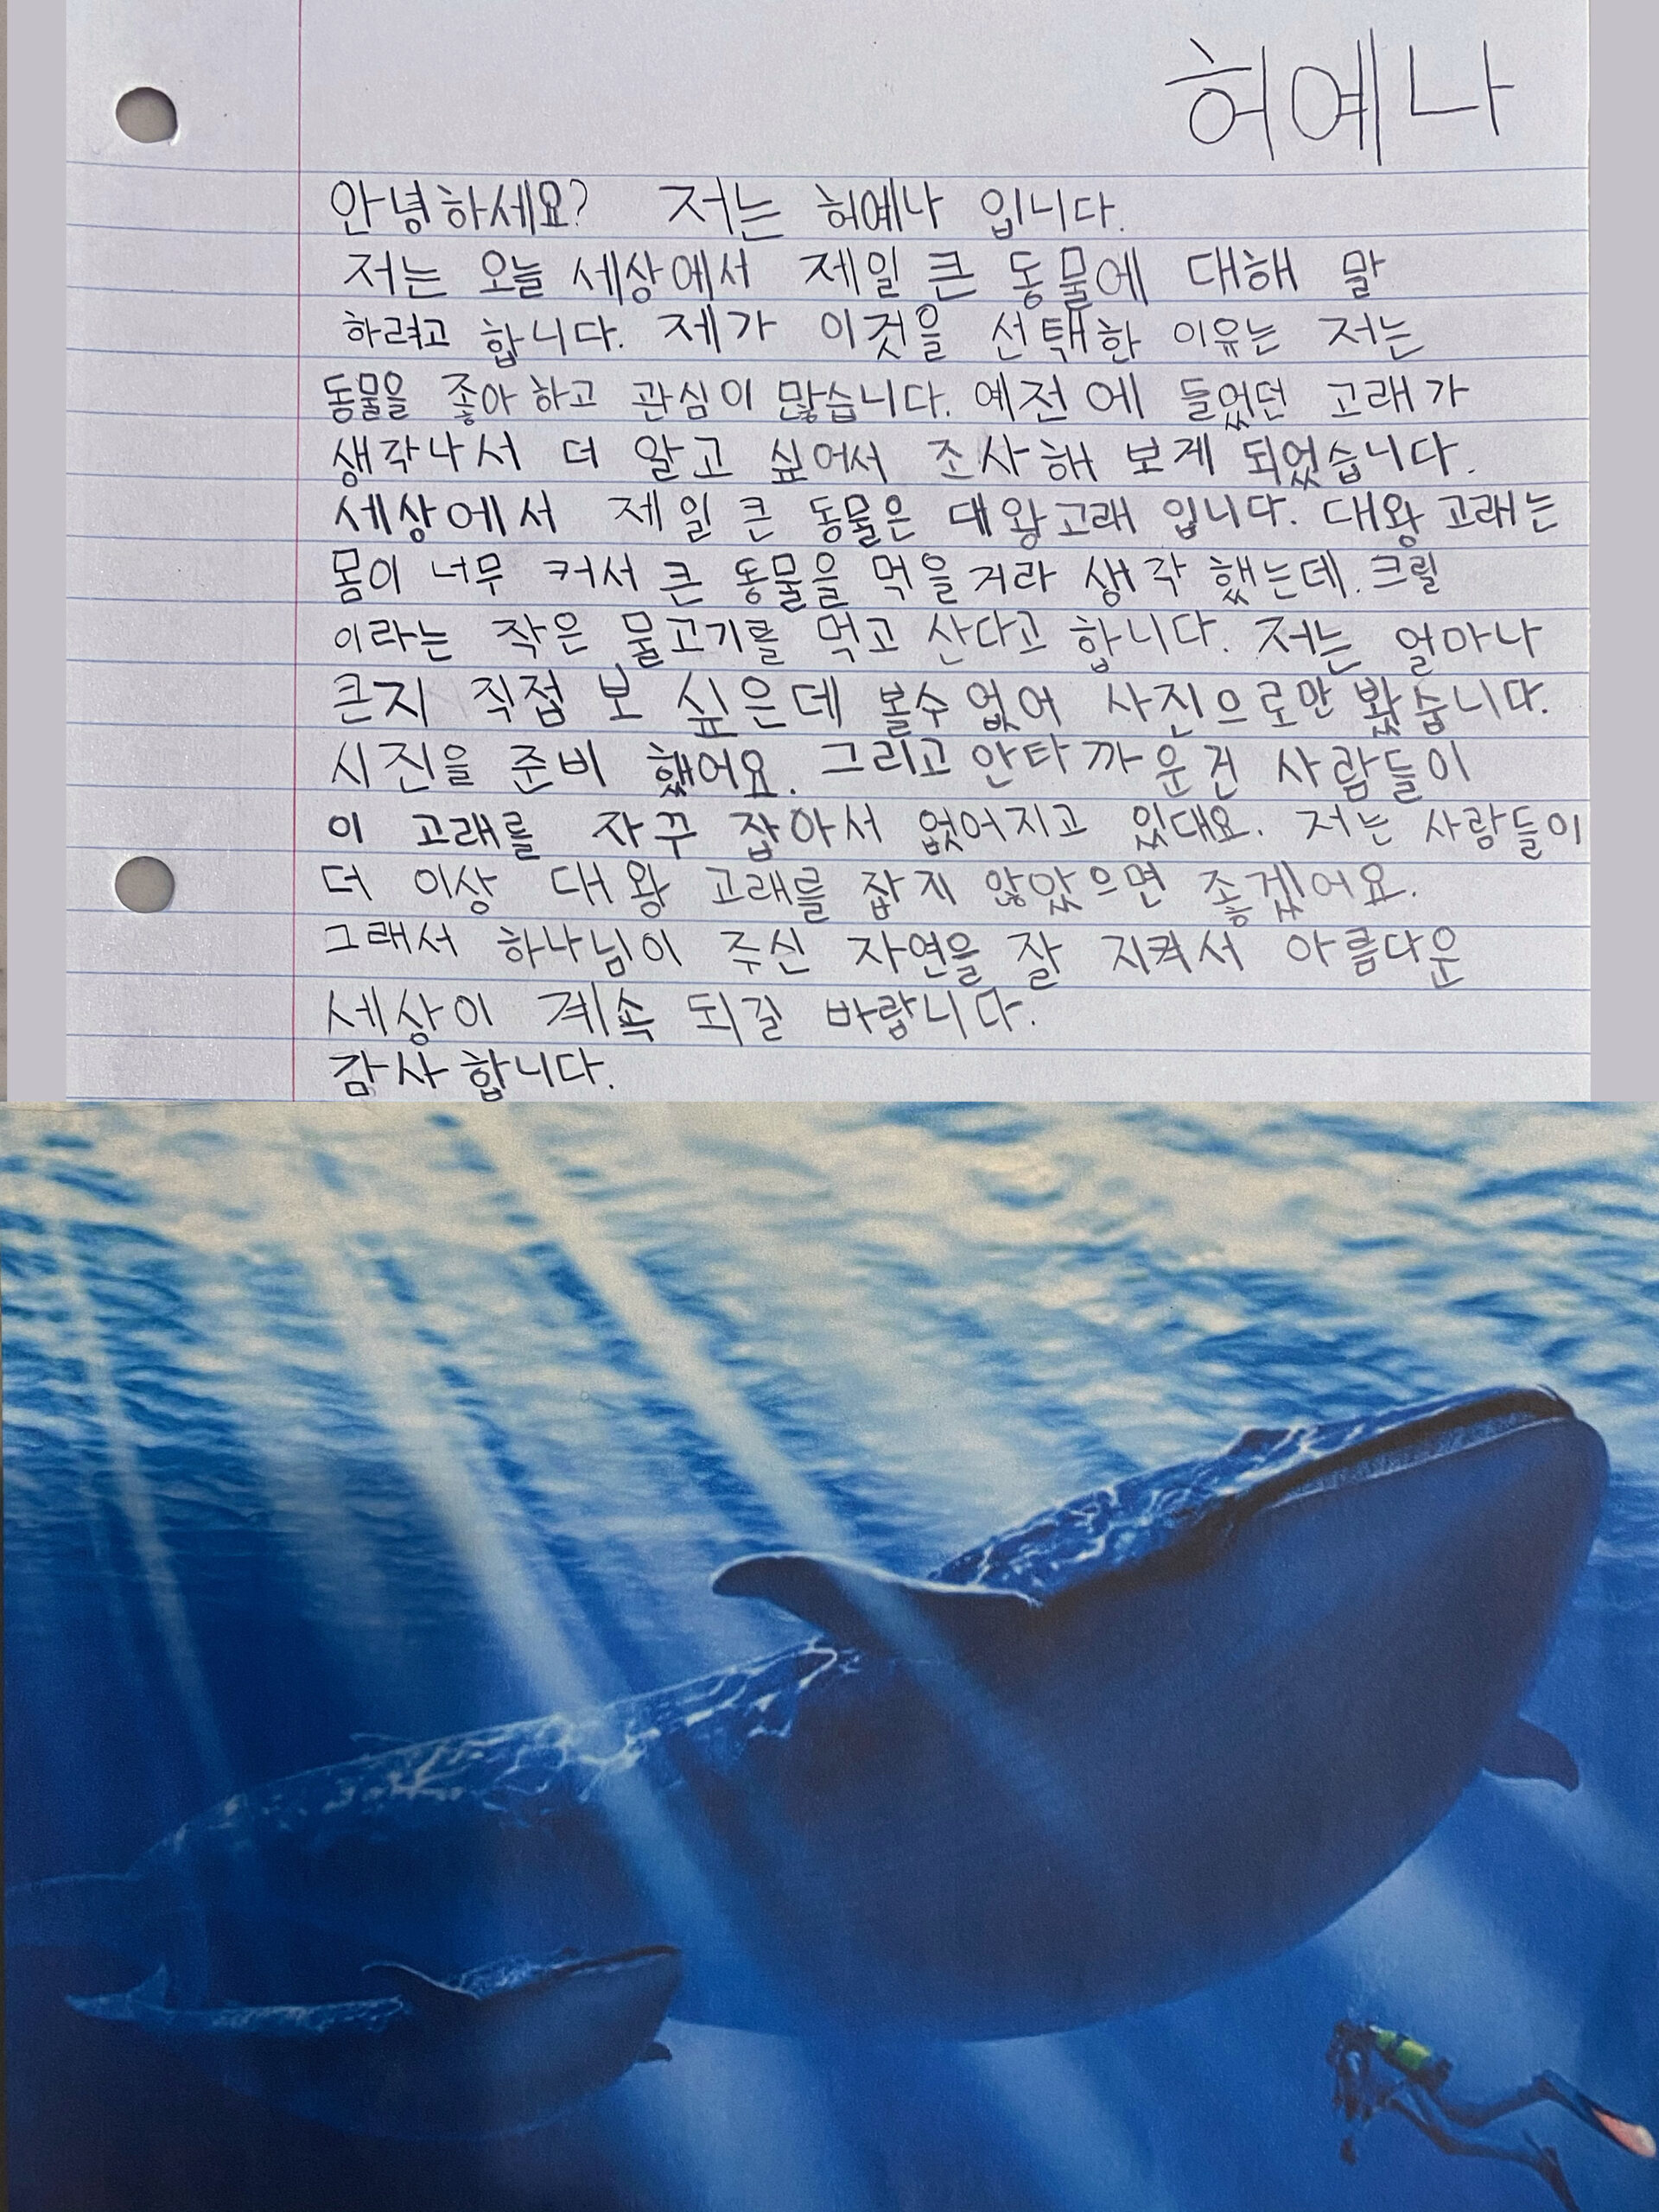 허예나
안녕하세요? 저는 허예나 입니다.
저는 오늘 세상에서 제일 큰 동물에 대해 말
하려고 합니다. 제가 이것을 선택한 이유는 저는
동물을 좋아하고 관심이 많습니다. 예전에 들었던 고래가
생각나서 더 알고 싶어서 조사해 보게 되었습니다.
세상에서 제일 큰 동물은 대왕고래 입니다. 대왕 고래는
몸이 너무 커서 큰 동물을 먹을거라 생각 했는데. 크릴
이라는 작은 물고기를 먹고 산다고 합니다. 저는 얼마나
큰지 직접 보 싶은데 볼수 없어 사진으로만 봤습니다.
시진을 준비 했어요. 그리고 안타까운건 사람들이
이 고래를 자꾸 잡아서 없어지고 있대요. 저는 사람들이
더 이상 대왕 고래를 잡지 않았으면 좋겠어요.
그래서 하나님이 주신 자연을 잘 지켜서 아름다운
세상이 계속 되길 바랍니다.
감사합니다.